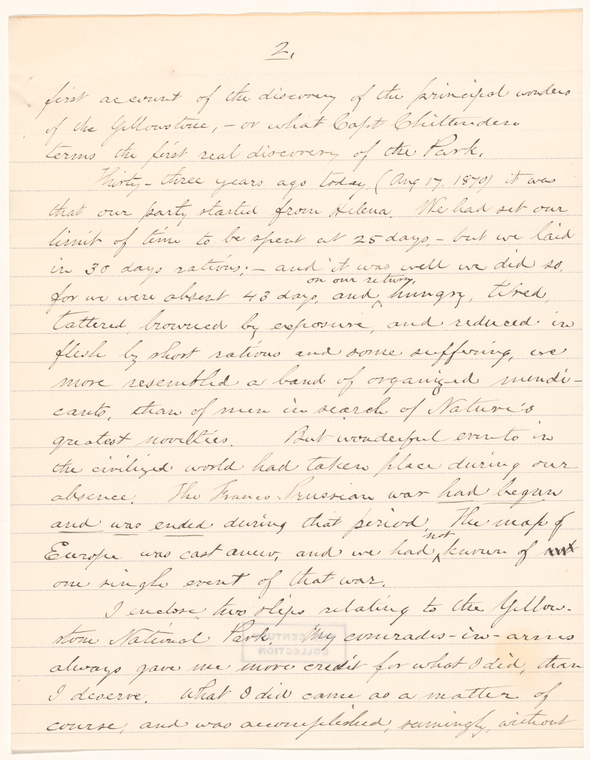 2.
first account of the discovery of the principal wonders
of the Yellowstone, – or what Capt Chittenden
terms the first real discovery of the Park.
Thirty-three years ago today (Aug 17, 1870) it was
that our party started from Helena. We had set our
limit of time to be spent at 25 days, – but we laid
in 30 days rations; – and it was well we did so,
for we were absent 43 days, and
on our return,
hungry, tired,
tattered, browned by exposure, and reduced in
flesh by short rations and some suffering, we
more resembled a band of organized mendi-
cants, than of men in search of Nature's
greatest novelties. But wonderful events in
the civilized world had taken place during our
absence. The Franco-Prussian war had begun
and was ended during that period. The map of
Europe was cast anew, and we had not known of
one single event of that war.
I enclose two slips relating to the Yellow-
stone National Park. My comrades-in-arms
always gave me more credit for what I did, than
I deserve. What I did came as a matter of
course, and was accomplished, seemingly, without
CENTURY
COLLECTION